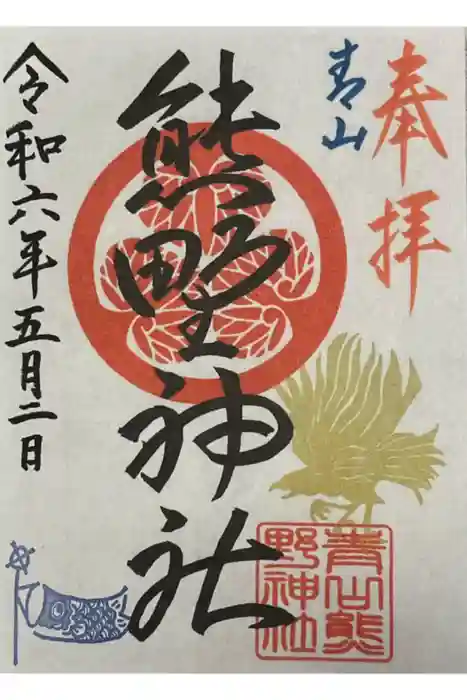 奉拝
青山
熊野神社
令和六年五月二日
青山熊
野神社